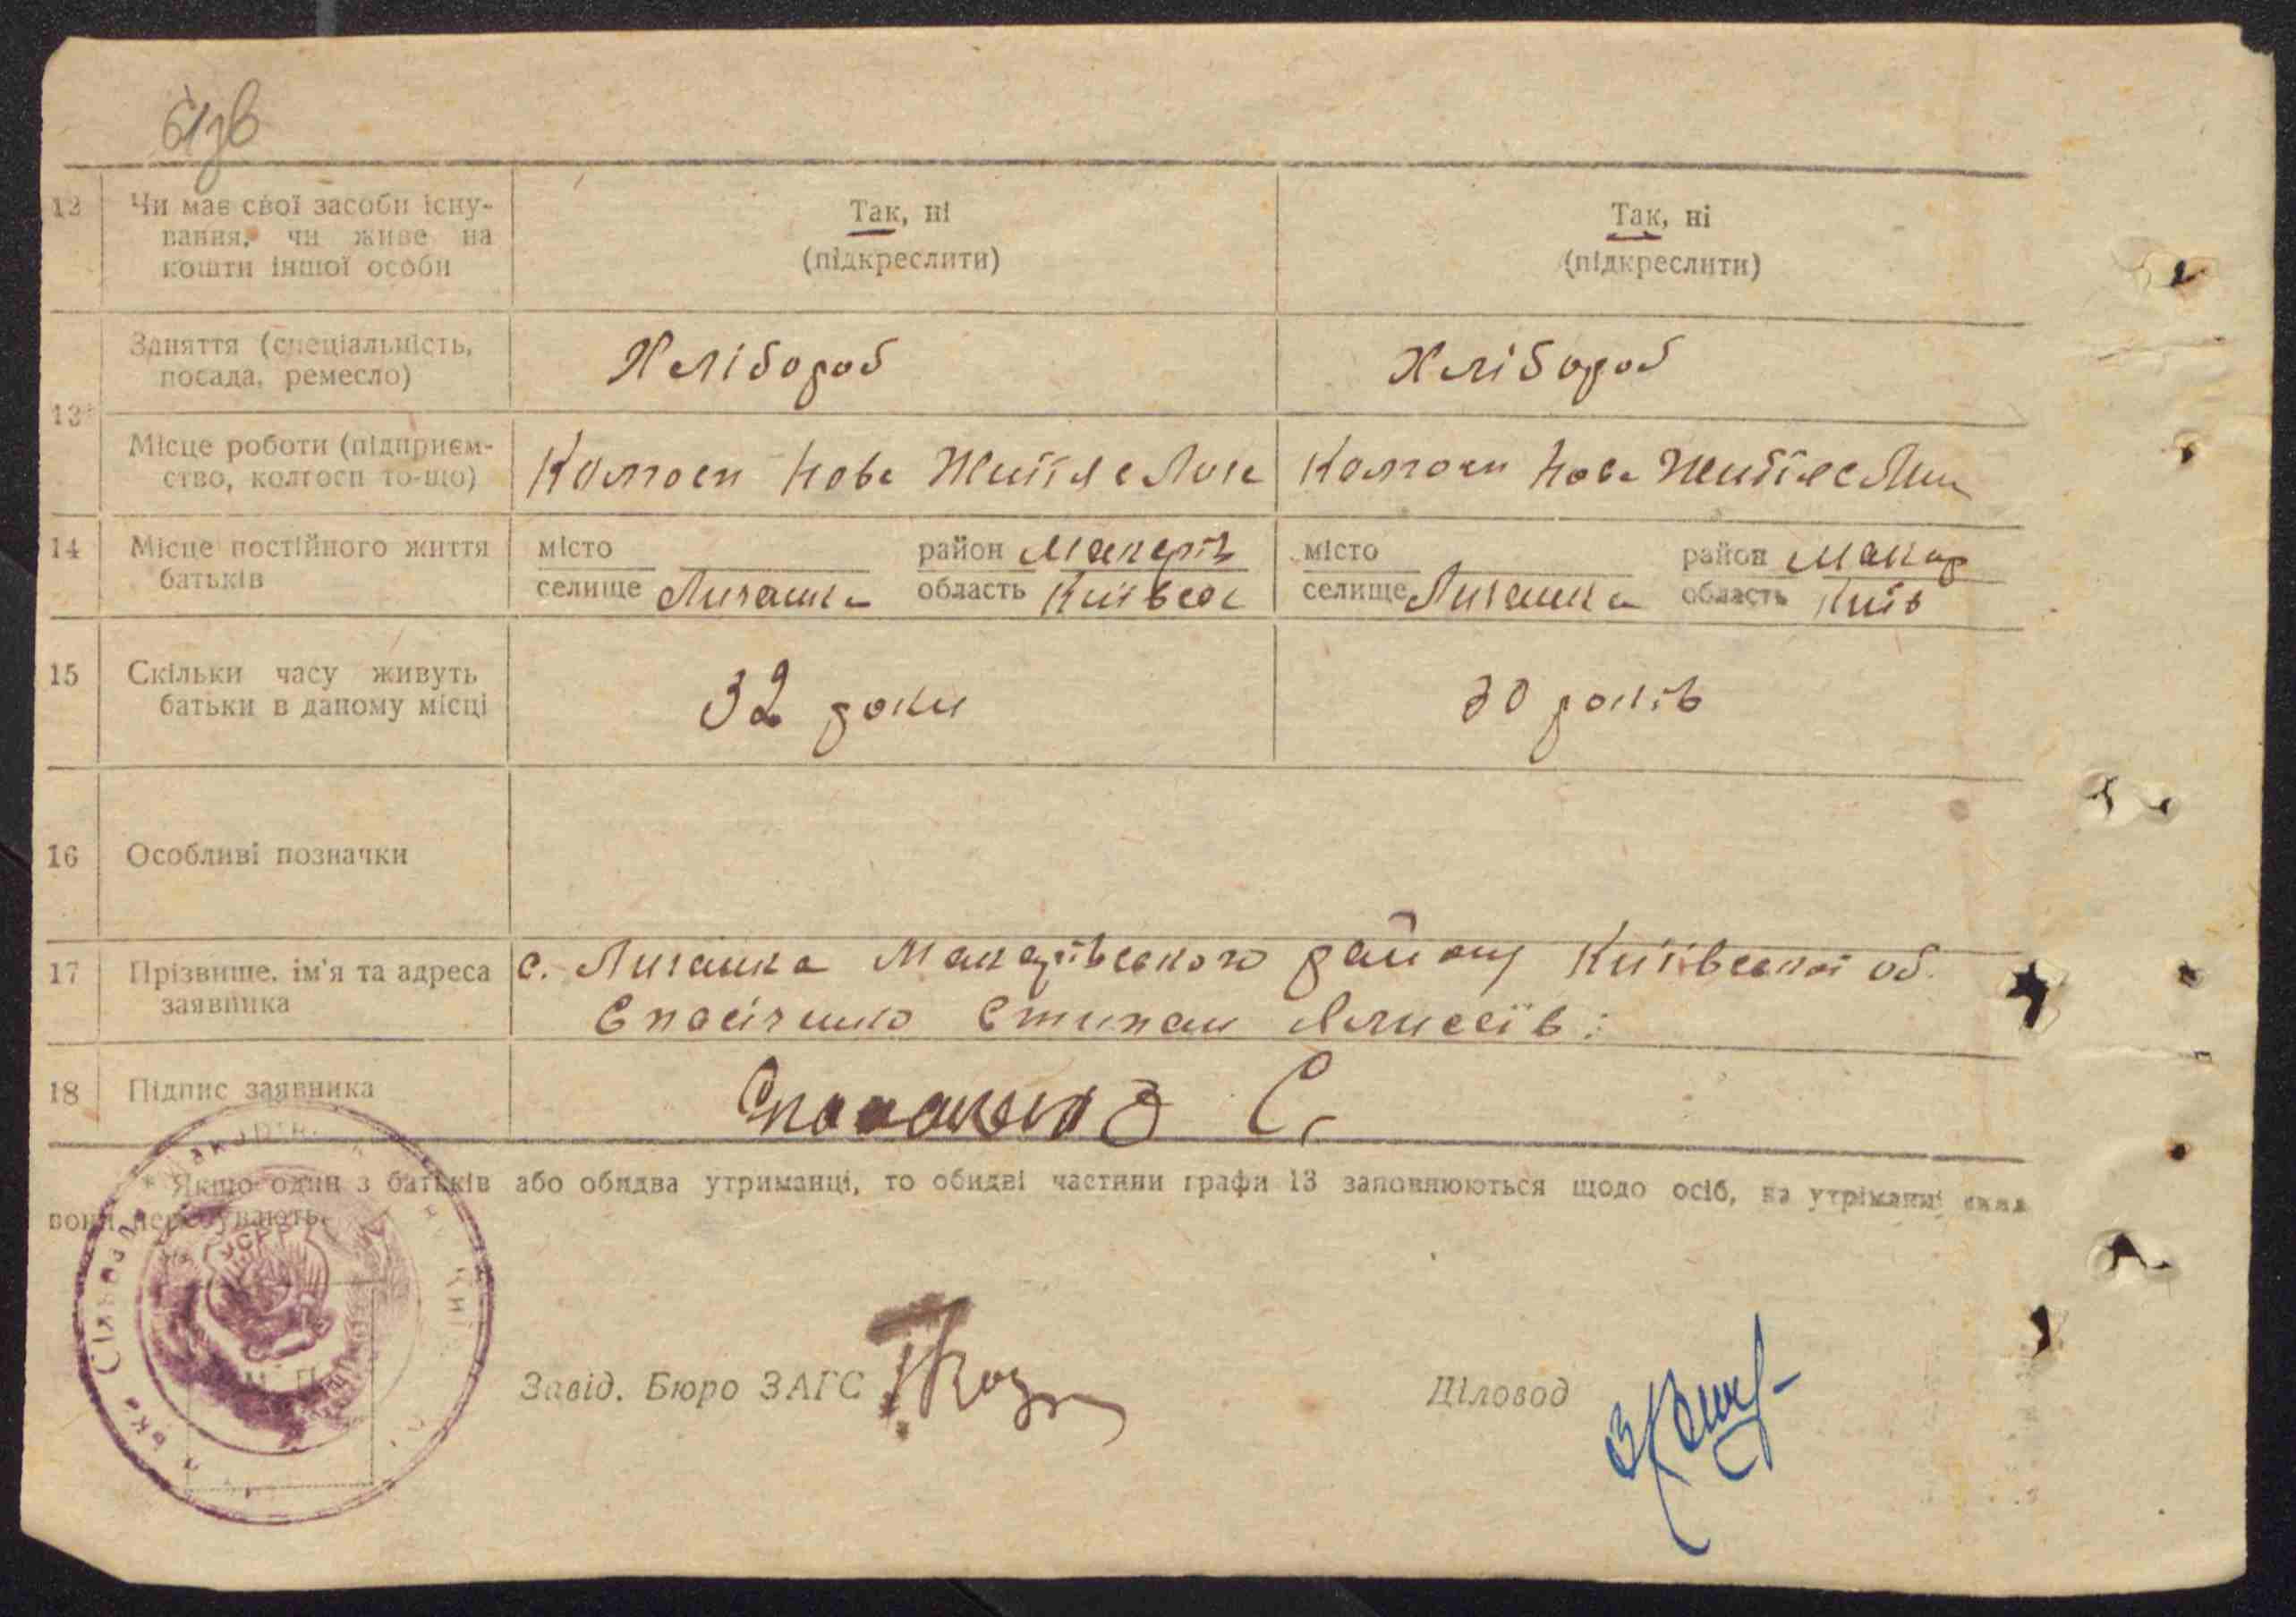 61зв
12 Чи має свої засоби існу-
вання, чи живе на
кошти іншої особи
Так, ні
(підкреслити)
Так, ні
(підкреслити)
13
Заняття (спеціальність,
посада, ремесло)
Хлібороб
Хлібороб
Місце роботи (підприєм-
ство, колгосп то-що)
Колгосп Нове Життя с
Колгосп Нове Життя с
14 Місце постійного життя
батьків
місто район Макарів
селище Личанка область
місто район Макар
селище Личанка область Київ
15 Скільки часу живуть
батьки в даному місці
32 роки
30 років
16 Особливі позначки
17 Прізвище, ім'я та адреса
заявника
с. Личанка Макарівського району Київської об.
18 Підпис заявника
С.
* Якщо один з батьків або обидва утриманці, то обидві частини графи 13 заповнюються щодо осіб, на утриманні яких
вони перебувають.
УСРР
М. П.
Завід. Бюро ЗАГС
Діловод